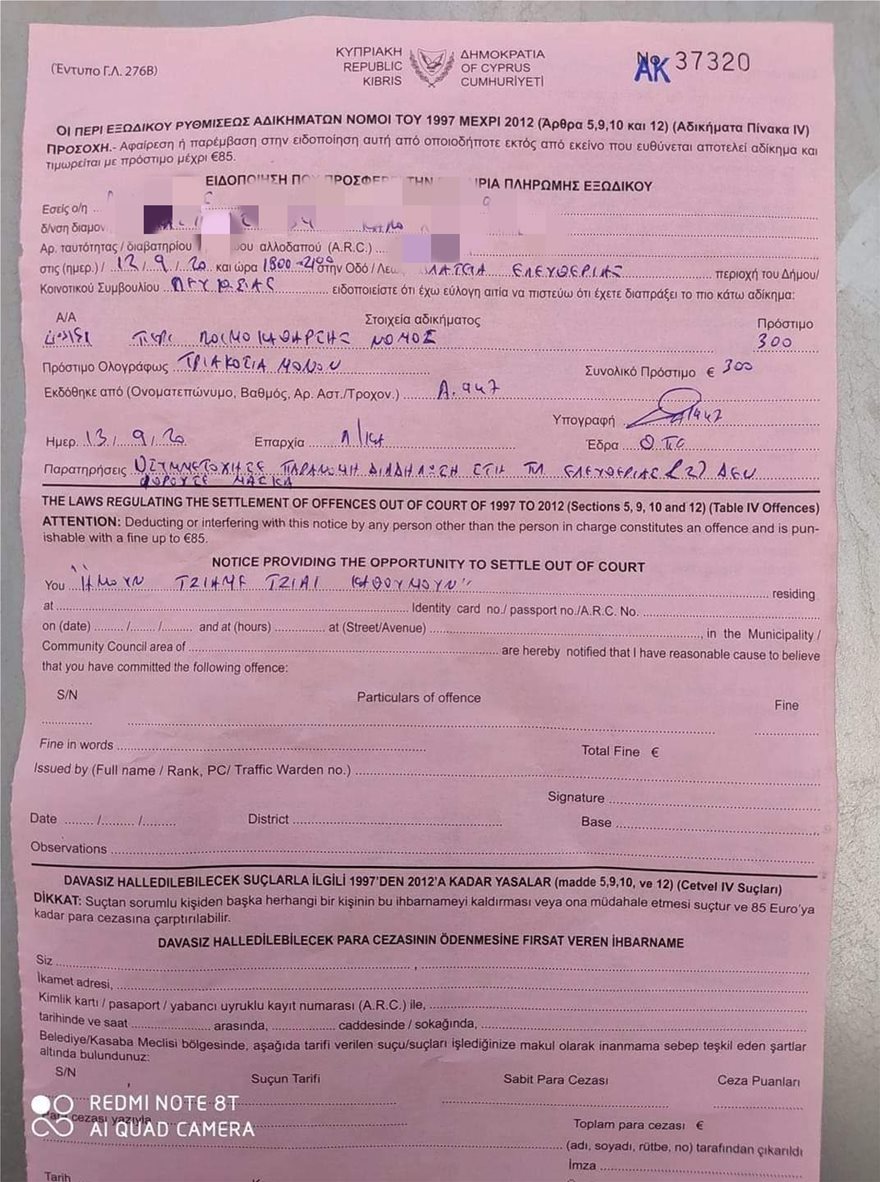 (Έντυπο Γ.Λ. 276Β)
ΚΥΠΡΙΑΚΗ ΔΗΜΟΚΡΑΤΙΑ
REPUBLIC OF CYPRUS
KIBRIS CUMHURİYETİ
No 37320
AK
ΟΙ ΠΕΡΙ ΕΞΩΔΙΚΟΥ ΡΥΘΜΙΣΕΩΣ ΑΔΙΚΗΜΑΤΩΝ ΝΟΜΟΙ ΤΟΥ 1997 ΜΕΧΡΙ 2012 (Άρθρα 5,9,10 και 12) (Αδικήματα Πίνακα IV)
ΠΡΟΣΟΧΗ.- Αφαίρεση ή παρέμβαση στην ειδοποίηση αυτή από οποιοδήποτε εκτός από εκείνο που ευθύνεται αποτελεί αδίκημα και
τιμωρείται με πρόστιμο μέχρι €85.
ΕΙΔΟΠΟΙΗΣΗ ΠΛΗΡΩΜΗΣ ΕΞΩΔΙΚΟΥ
Εσείς ο/η
δ/νση
Αρ. ταυτότητας / διαβατηρίου αλλοδαπού (A.R.C.)
στις (ημερ.) / 12/9/20 και ώρα 1800-2100 στην Οδό / ΠΛΑΤΕΙΑ ΕΛΕΥΘΕΡΙΑΣ περιοχή του Δήμου/
Κοινοτικού Συμβουλίου ΛΕΥΚΩΣΙΑΣ ειδοποιείστε ότι έχω εύλογη αιτία να πιστεύω ότι έχετε διαπράξει το πιο κάτω αδίκημα:
Α/Α Στοιχεία αδικήματος Πρόστιμο
ΠΕΡΙ ΛΟΙΜΟΚΑΘΑΡΣΗΣ ΝΟΜΟΣ 300
Πρόστιμο Ολογράφως ΤΡΙΑΚΟΣΙΑ ΜΟΝΟΝ Συνολικό Πρόστιμο € 300
Εκδόθηκε από (Ονοματεπώνυμο, Βαθμός, Αρ. Αστ./Τροχον.) Α.947
Υπογραφή
Ημερ. 13/9/20 Επαρχία Λ/ΚΑ Έδρα
Παρατηρήσεις ΣΥΜΜΕΤΟΧΗ ΣΕ ΠΑΡΑΝΟΜΗ ΔΙΑΔΗΛΩΣΗ ΣΤΗ ΠΛ ΕΛΕΥΘΕΡΙΑΣ 2) ΔΕΝ
ΦΟΡΟΥΣΕ ΜΑΣΚΑ
THE LAWS REGULATING THE SETTLEMENT OF OFFENCES OUT OF COURT OF 1997 TO 2012 (Sections 5, 9, 10 and 12) (Table IV Offences)
ATTENTION: Deducting or interfering with this notice by any person other than the person in charge constitutes an offence and is pun-
ishable with a fine up to €85.
NOTICE PROVIDING THE OPPORTUNITY TO SETTLE OUT OF COURT
You "ΗΜΟΥΝ ΤΖΙΑΜΕ ΤΖΙΑΙ ΚΑΘΟΥΜΟΥΝ" residing
at Identity card no./ passport no./A.R.C. No.
on (date) ....../....../...... and at (hours) at (Street/Avenue) , in the Municipality /
Community Council area of are hereby notified that I have reasonable cause to believe
that you have committed the following offence:
S/N Particulars of offence Fine
Fine in words Total Fine €
Issued by (Full name / Rank, PC/ Traffic Warden no.)
Signature
Date ....../....../...... District Base
Observations
DAVASIZ HALLEDİLEBİLECEK SUÇLARLA İLGİLİ 1997'DEN 2012'A KADAR YASALAR (madde 5,9,10, ve 12) (Cetvel IV Suçları)
DİKKAT: Suçtan sorumlu kişiden başka herhangi bir kişinin bu ihbarnameyi kaldırması veya ona müdahale etmesi suçtur ve 85 Euro'ya
kadar para cezasına çarptırılabilir.
DAVASIZ HALLEDİLEBİLECEK PARA CEZASININ ÖDENMESİNE FIRSAT VEREN İHBARNAME
Siz ,
İkamet adresi,
Kimlik kartı / pasaport / yabancı uyruklu kayıt numarası (A.R.C.) ile,
tarihinde ve saat arasında, caddesinde / sokağında,
Belediye/Kasaba Meclisi bölgesinde, aşağıda tarifi verilen suçu/suçları işlediğinize makul olarak inanmama sebep teşkil eden şartlar
altında bulundunuz:
S/N Suçun Tarifi Sabit Para Cezası Ceza Puanları
Para cezası yazıyla Toplam para cezası €
(adı, soyadı, rütbe, no) tarafından çıkarıldı
İmza
Tarih
REDMI NOTE 8T
AI QUAD CAMERA